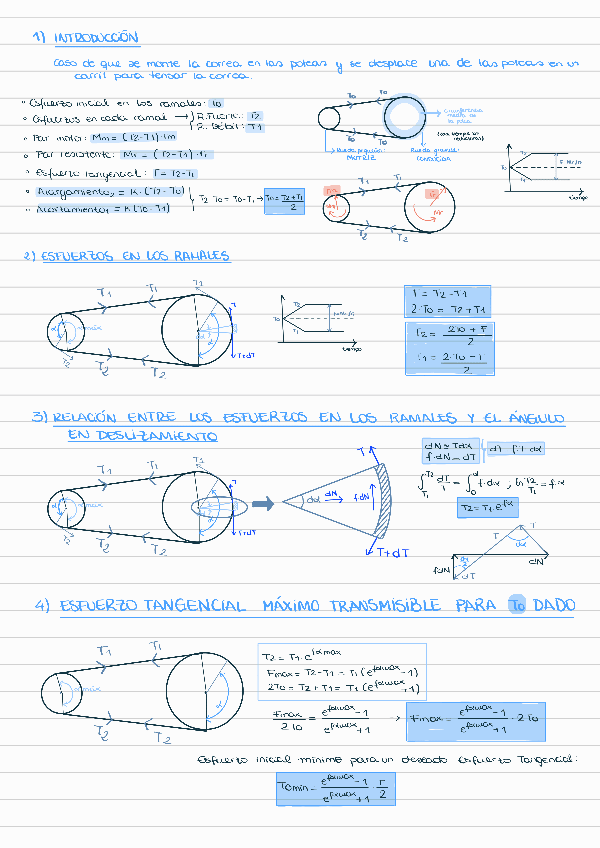 1) INTRODUCCIÓN
Caso de que se monte la correa en las poleas y se desplace una de las poleas en un
carril para tensar la correa.
• Esfuerzo inicial en los ramales: To
• Esfuerzos en cada ramal → R. Fuerte: T2
R. Débil: T1
• Par motor: Mm = (T2-T1)·rm
• Par resistente: Mr = (T2-T1)·rr
• Esfuerzo tangencial: F = T2-T1
• Alargamiento2 = K·(T2-To)
• Acortamiento1 = K(To-T1)
T2-To = To-T1 → To = T2+T1 / 2
To To
To To
Circunferencia
media de
la polea
Rueda pequeña:
MOTRIZ
Rueda grande:
CONDUCIDA
T1 T1
T2 T2
Mm
Mr
To
T2
T1
tiempo
2) ESFUERZOS EN LOS RAMALES
T1 T1 T1
T
α
αmáx
T2 T2 T2
T+dT
To
T2
T1
tiempo
F = T2-T1
2·To = T2+T1
T2 = 2To + F / 2
T1 = 2·To - F / 2
3) RELACIÓN ENTRE LOS ESFUERZOS EN LOS RAMALES Y EL ÁNGULO
EN DESLIZAMIENTO
T1 T1 T1
T
α
αmáx
T2 T2 T2
T+dT
T
dα
dN
f·dN
T+dT
dN = Tdα
f·dN = dT
dT = f·T·dα
∫T1 T2 dT/T = ∫0 α f·dα ; ln T2/T1 = f·α
T2 = T1·e^fα
T
T
dα
fdN
dN
dT
4) ESFUERZO TANGENCIAL MÁXIMO TRANSMISIBLE PARA To DADO
T1 T1
αmáx
α
T2 T2
T2 = T1·e^fαmax
Fmax = T2-T1 = T1(e^fαmax-1)
2To = T2+T1 = T1(e^fαmax+1)
Fmax / 2To = e^fαmax-1 / e^fαmax+1 → Fmax = e^fαmax-1 / e^fαmax+1 · 2To
Esfuerzo inicial mínimo para un deseado Esfuerzo Tangencial:
Tomin = e^fαmax-1 / e^fαmax+1 · F/2